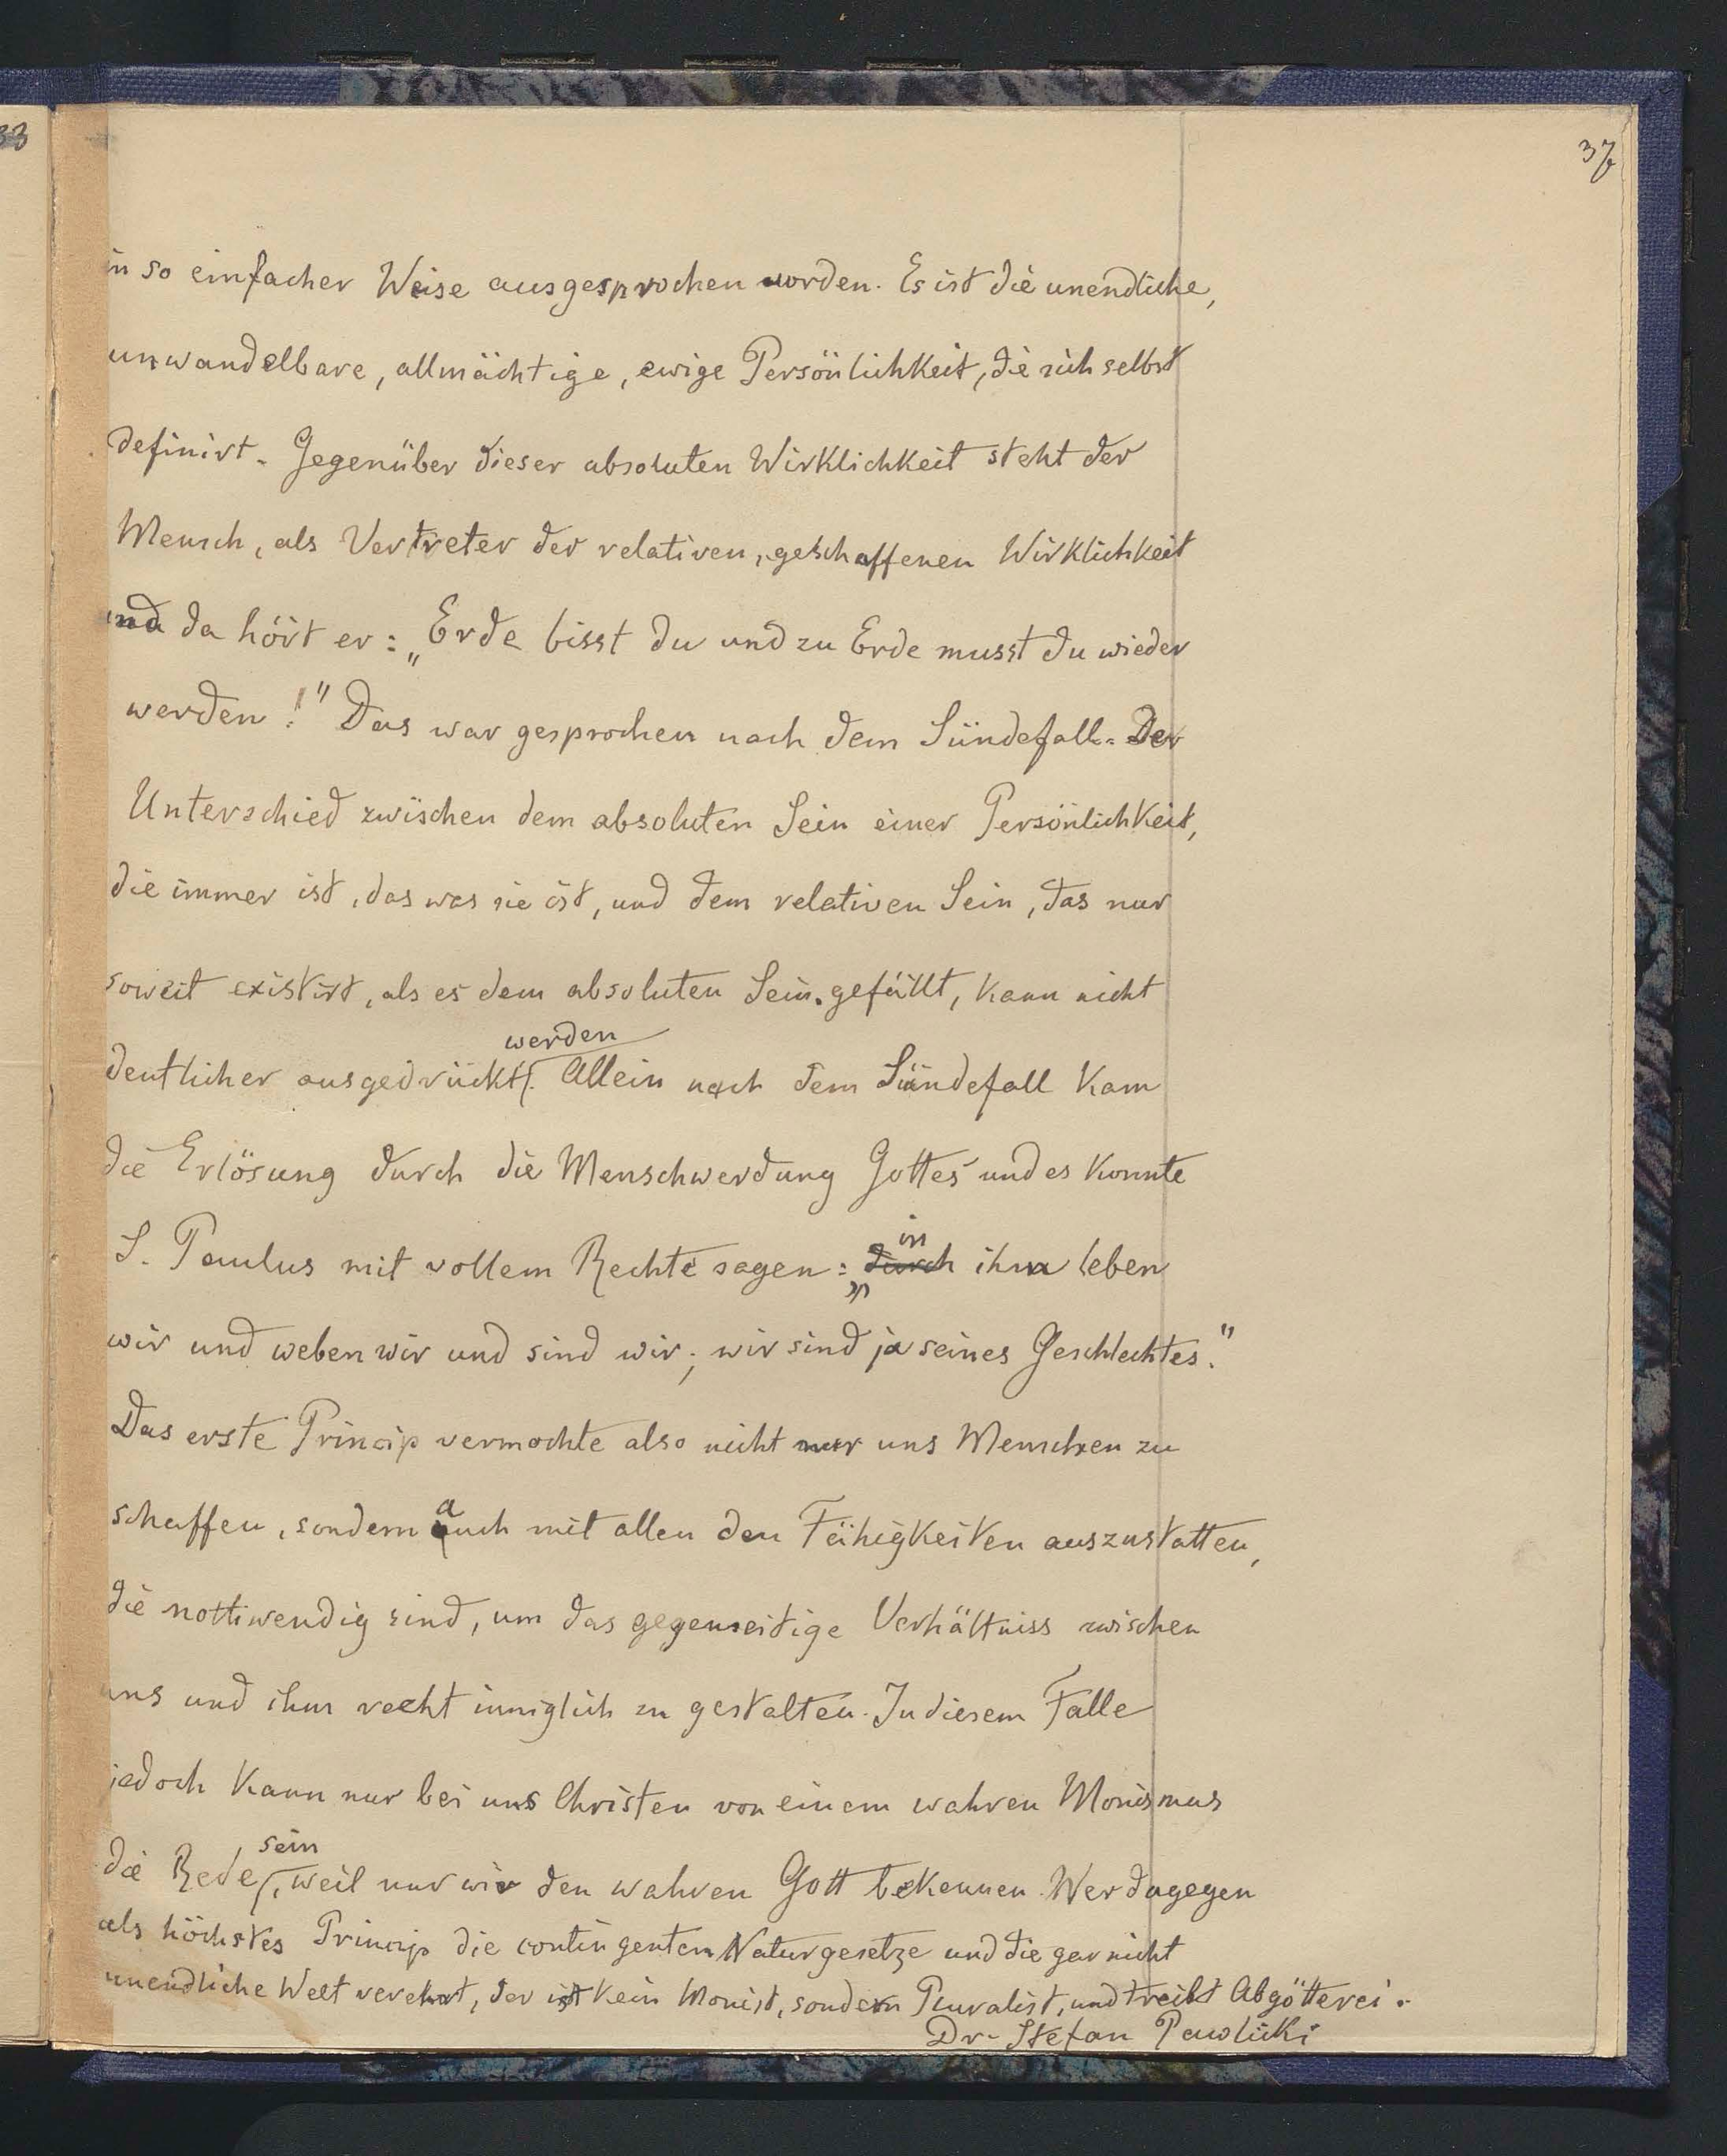 33
37
in so einfacher Weise ausgesprochen worden. Es ist die unendliche,
unwandelbare, allmächtige, ewige Persönlichkeit, die sich selbst
definirt. Gegenüber dieser absoluten Wirklichkeit steht der
Mensch, als Vertreter der relativen, geschaffenen Wirklichkeit
und da hört er: „Erde bisst du und zu Erde musst du wieder
werden!" Das war gesprochen nach dem Sündefall. Der
Unterschied zwischen dem absoluten Sein einer Persönlichkeit,
die immer ist, das was sie ist, und dem relativen Sein, das nur
soweit existirt, als es dem absoluten Sein gefällt, kann nicht
werden
deutlicher ausgedrückt. Allein nach dem Sündefall kam
die Erlösung durch die Menschwerdung Gottes und es konnte
in
S. Paulus mit vollem Rechte sagen: „durch ihm leben
wir und weben wir und sind wir; wir sind ja seines Geschlechtes."
Das erste Princip vermochte also nicht nur uns Menschen zu
schaffen, sondern auch mit allen den Fähigkeiten auszustatten,
die nothwendig sind, um das gegenseitige Verhältniss zwischen
uns und ihm recht inniglich zu gestalten. In diesem Falle
jedoch kann nur bei uns Christen von einem wahren Monismus
sein
die Rede, weil nur wir den wahren Gott bekennen. Wer dagegen
als höchstes Princip die contingenten Naturgesetze und die gar nicht
unendliche Welt verehrt, der ist kein Monist, sondern Pluralist, und treibt Abgötterei.
Dr. Stefan Pawlicki